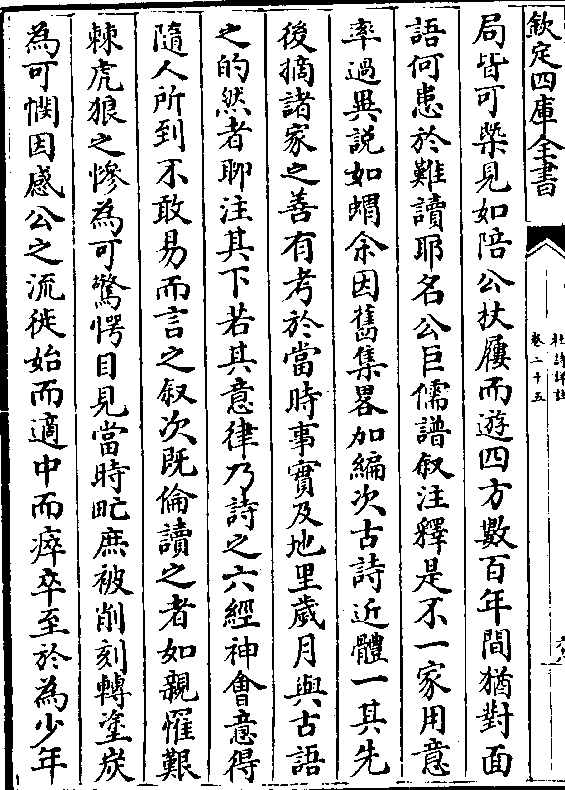 欽定四庫全書
杜詩詳註
卷二十五
局皆可槩見如陪公杖屨而遊四方數百年間猶對面
語何患於難讀耶名公巨儒譜叙注釋是不一家用意
率過異説如蝟余因舊集畧加編次古詩近體一其先
後摘諸家之善有考於當時事實及地里歲月與古語
之的然者聊注其下若其意律乃詩之六經神會意得
隨人所到不敢易而言之叙次既倫讀之者如親罹艱
棘虎狼之慘為可驚愕目見當時甿庶被削刻轉塗炭
為可憫因感公之流徙始而適中而瘁卒至於為少年